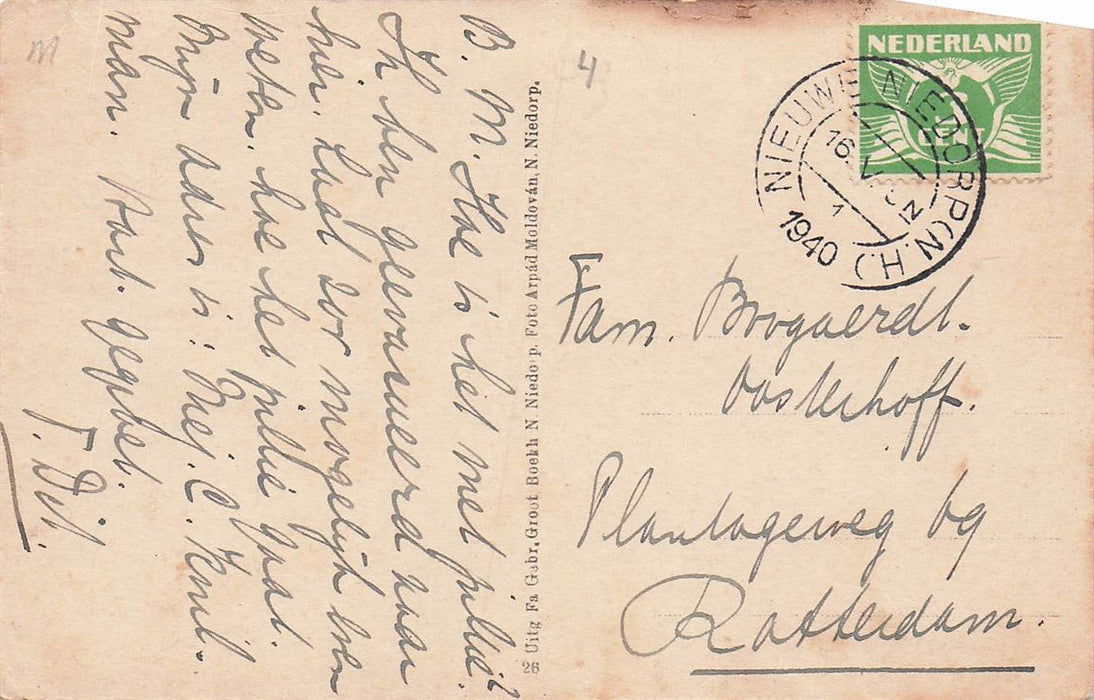 B. M. Hoe is het met jullie?
Ik ben geevacueerd naar
hier. Laat zoo mogelijk even
weten, hoe het jullie gaat.
Mijn adres is: Mej. C.
man. Hart. gegroet.
F. Dit.
m
4
26 Uitg Fa Gebr, Groot Boekh N Niedorp. Foto Arpád Moldován, N. Niedorp.
NEDERLAND
NIEUWE NIEDORP (N.H.)
16.V
1
1940
Fam. Boogaerdt-
Oosterhoff.
Plantageweg 69
Rotterdam.